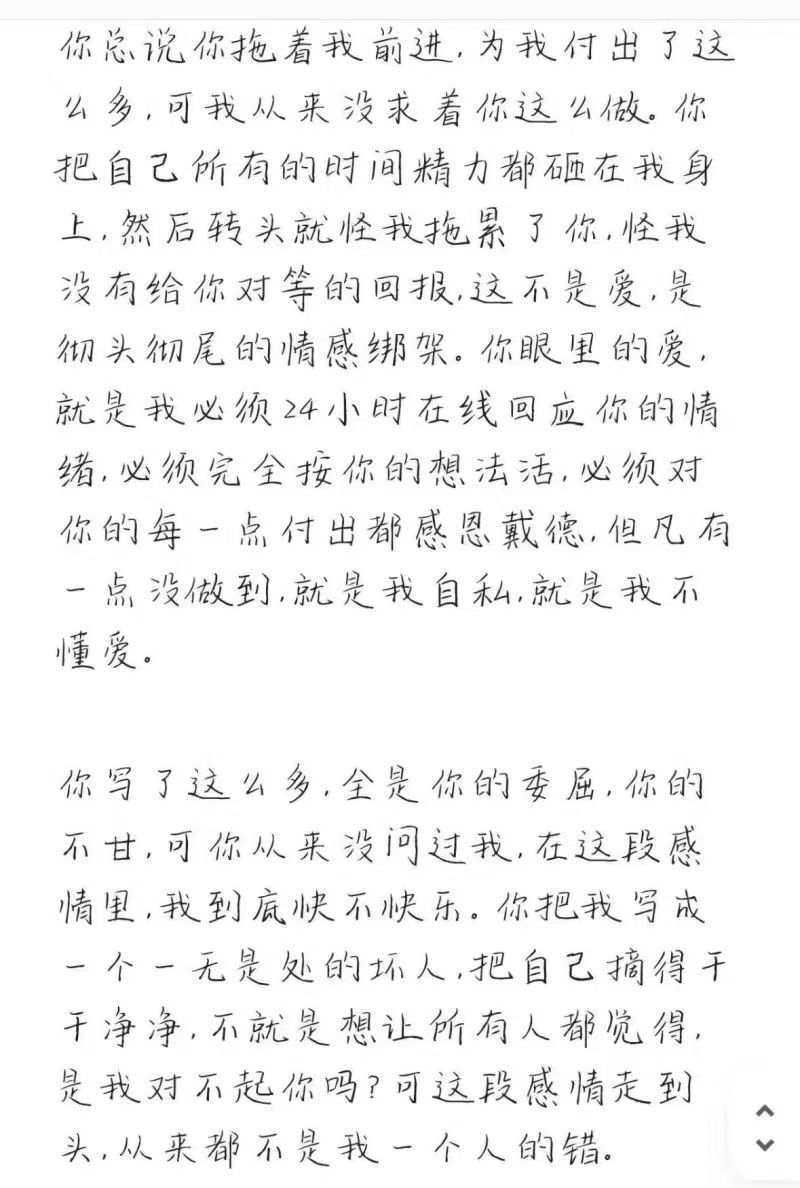 你总说你拖着我前进,为我付出了这
么多,可我从来没求着你这么做。你
把自己所有的时间精力都砸在我身
上,然后转头就怪我拖累了你,怪我
没有给你对等的回报,这不是爱,是
彻头彻尾的情感绑架。你眼里的爱,
就是我必须24小时在线回应你的情
绪,必须完全按你的想法活,必须对
你的每一点付出都感恩戴德,但凡有
一点没做到,就是我自私,就是我不
懂爱。
你写了这么多,全是你的委屈,你的
不甘,可你从来没问过我,在这段感
情里,我到底快不快乐。你把我写成
一个一无是处的坏人,把自己摘得干
干净净,不就是想让所有人都觉得,
是我对不起你吗?可这段感情走到
头,从来都不是我一个人的错。